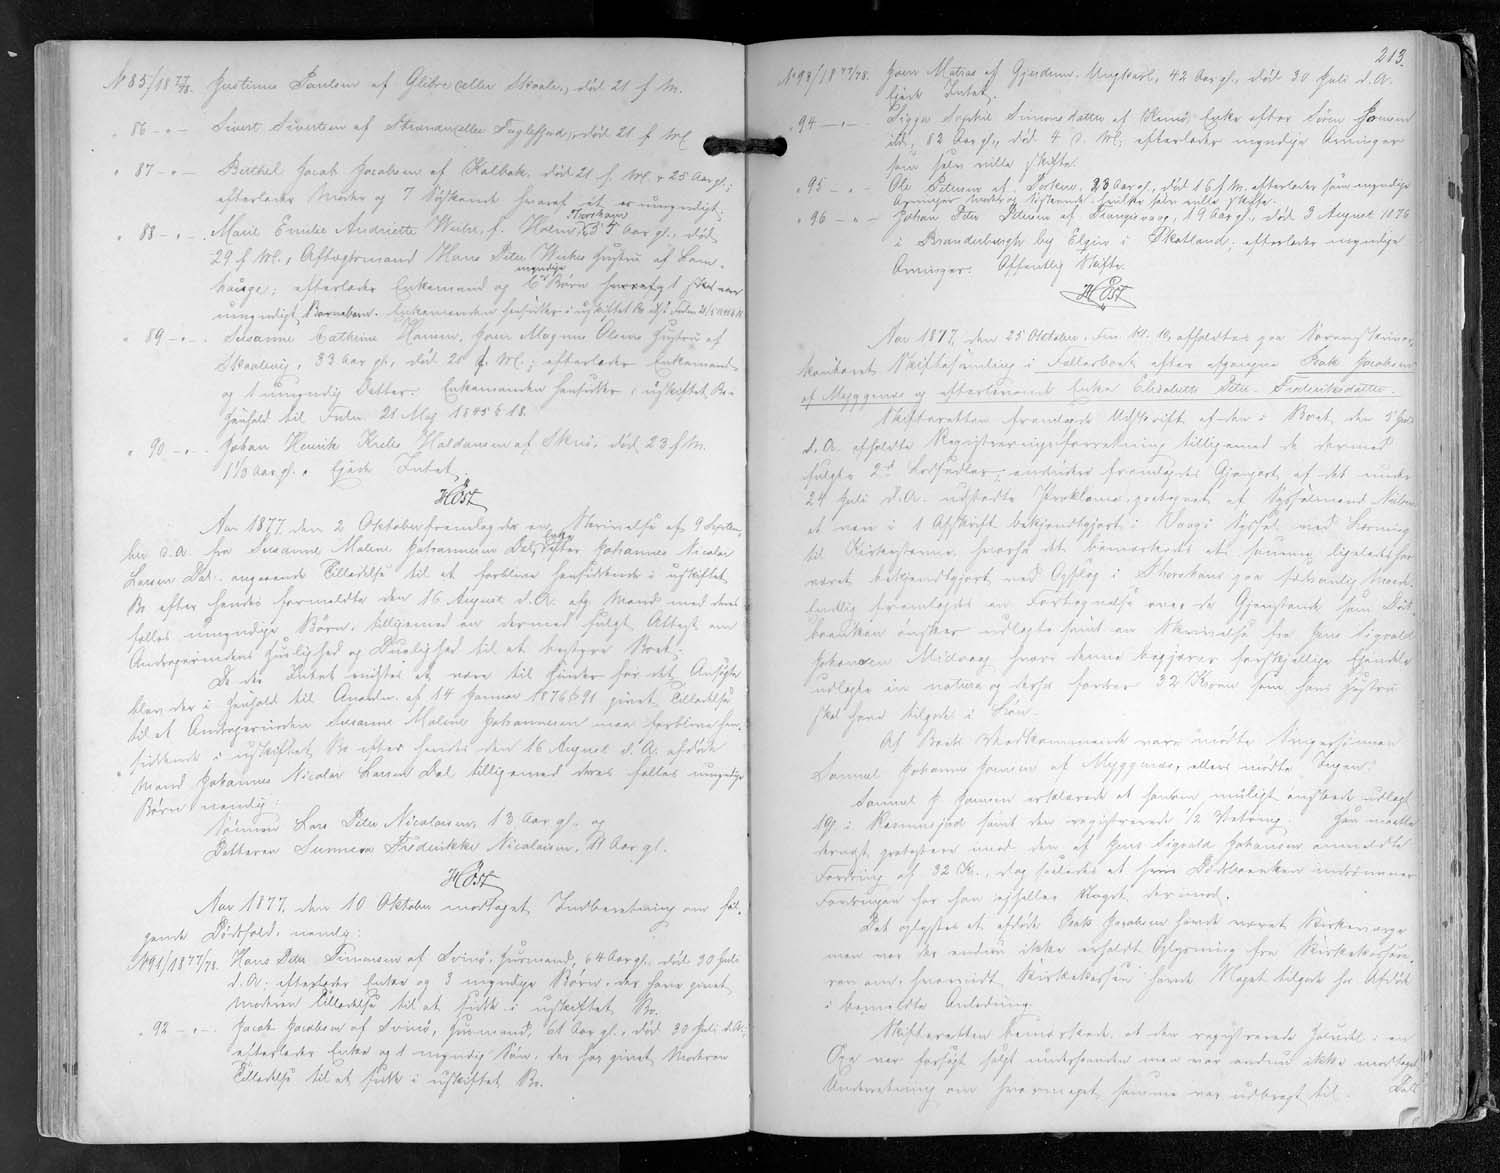 N 85/18 77/78. Justinus Poulsen af Glibre eller Skaale, død 21 f. M.
" 86 -"- Sivert Sivertsen af Strænder eller Fuglefjord, død 21 f. M.
" 87 -"- Berthel Jacob Jacobsen af Kalbak, død 21 f. M., 25 Aar gl.;
efterlader Moder og 7 Søskende hvoraf et er umyndigt.
" 88 -"- Marie Emilie Andriette Weihe, f. Holm, Thorshavn 57 Aar gl., død
29 f. M., Aftægtsmand Hans Peter Weihes Hustru af Lam-
bauge; efterlader Enkemand og 6 myndige Børn
umyndigt Barnebarn. Enkemanden hensidder i uskiftet Bo
" 89 -"- Susanne Cathrine Hansen, Joen Magnus Olsens Hustru af
Skaalevig, 33 Aar gl., død 20 f. M.; efterlader Enkemand
og 1 umyndig Datter. Enkemanden hensidder i uskiftet Bo i
Henhold til Frdn. 21 Maj 1845 § 18.
" 90 -"- Johan Henrik Krelis Haldansen af Skuø, død 23 f. M.
1 1/3 Aar gl. Ejede Intet.
Høst
Aar 1877, den 2 Oktober fremlagdes en Skrivelse af 9 Septem-
ber d. A. fra Susanne Malene Johannesen Dal, Enke efter Johannes Nicolai
Larsen Dal, angaaende Tilladelse til at forblive hensiddende i uskiftet
Bo efter hendes formeldte den 16 August d. A. afg. Mand med deres
fælles umyndige Børn, tilligemed en dermed fulgt Attest om
Andragerindens Huslighed og Duelighed til at bestyre Boet.
Da der Intet vidstes at være til Hinder for det Ansøgte
blev der i Henhold til Anordn. af 14 Januar 1876 § 91 givet Tilladelse
til at Andragerinden Susanne Malene Johannesen maa forblive hen-
siddende i uskiftet Bo efter hendes den 16 August d. A. afdøde
Mand Johannes Nicolai Larsen Dal tilligemed deres fælles umyndige
Børn nemlig:
Sønnen Lars Peter Nicolaisen, 13 Aar gl. og
Datteren Sunneva Frederikke Nicolaisen, 11 Aar gl.
Høst
Aar 1877, den 10 Oktober modtaget Indberetning om føl-
gende Dødsfald, nemlig:
N 91/18 77/78. Hans Peter Simonsen af Svinø, Huusmand, 64 Aar gl., død 30 Juli
d. A.; efterlader Enke og 3 myndige Børn, der have givet
Moderen Tilladelse til at sidde i uskiftet Bo.
" 92 -"- Jacob Jacobsen af Svinø, Huusmand, 61 Aar gl., død 30 Juli d. A.
efterlader Enke og 1 myndig Søn, der har givet Moderen
Tilladelse til at sidde i uskiftet Bo.
213.
N 93/18 77/78. Joen Matras af Gjerdum. Ungkarl, 42 Aar gl., død 30 Juli d. A.
Ejede Intet.
" 94 -"- Sigga Sophie Simonsdatter af Husø, Enke efter Søren Joensen
ibd., 82 Aar gl., død 4 d. M., efterlader myndige Arvinger
som selv ville skifte.
" 95 -"- Ole Petersen af Porkere, 23 Aar gl., død 16 f. M. efterlader som myndige
Arvinger Moder og Søskende, hvilke selv ville skifte.
" 96 -"- Johan Peter Petersen af Trangisvaag, 19 Aar gl., død 3 August 1876
i Branderburgh by Elgin i Skotland, efterlader myndige
Arvinger. Offentlig Skifte.
Høst
Aar 1877, den 25 Oktober, Fm. Kl. 10, afholdtes paa Sorenskriver-
kontoret Skiftesamling i Fællesboet efter afgangne Isak Jacobsen
af Myggenæs og efterlevende Enke Elisabeth Peter-Frederiksdatter.
Skifteretten fremlagde Udskrift af den i Boet den 5 Juli
d. A. afholdte Registreringsforretning tilligemed de dermed
fulgte 2 Lodsedler, endvidere fremlagdes Gjenpart af det under
24 Juli d. A. udstedte Proklama, paategnet af Sysselmand Nielsen
at være i 1 Afskrift bekjendtgjort i Vaagø Syssel ved Læsning
til Kirkestævne, hvorhos det bemærkedes at samme ligeledes har
været bekjendtgjort ved Opslag i Thorshavn paa sædvanlig Maade.
Endelig fremlagdes en Fortegnelse over de Gjenstande som Døds-
boenken ønsker udlagte samt en Skrivelse fra Jens Sigvald
Johansen Midvaag hvori denne begjærer forskjellige Ejendele
udlagte in natura og derhos fordrer 32 Kroner som hans Hustru
skal have tilgode i Løn.
Af Boets Vedkommende vare mødte Svigersønnen
Samuel Johannes Joensen af Myggenæs, ellers mødte Ingen.
Samuel J. Joensen erklærede at han om muligt ønskede udlagt
19/ i samt den registrerede 1/2 Vetrung. Han maatte
dernæst protestere mod den af Jens Sigvald Johansen anmeldte
Fordring af 32 Kr., dog saaledes at hvis Dødsboenken indrømmer
Fordringen har han ejheller Noget derimod.
Det oplystes at afdøde Isak Jacobsen havde været Kirkeværge
men var der endnu ikke erholdt Oplysning fra Kirkekasse-
ren om, hvorvidt Kirkekassen havde Noget tilgode hos Afdøde
i bemeldte Anledning.
Skifteretten bemærkede, at den registrerede Halvdel i en
Oxe var forsøgt solgt underhaanden men var endnu ikke modtaget
Underretning om hvormeget samme var udbragt til. Det